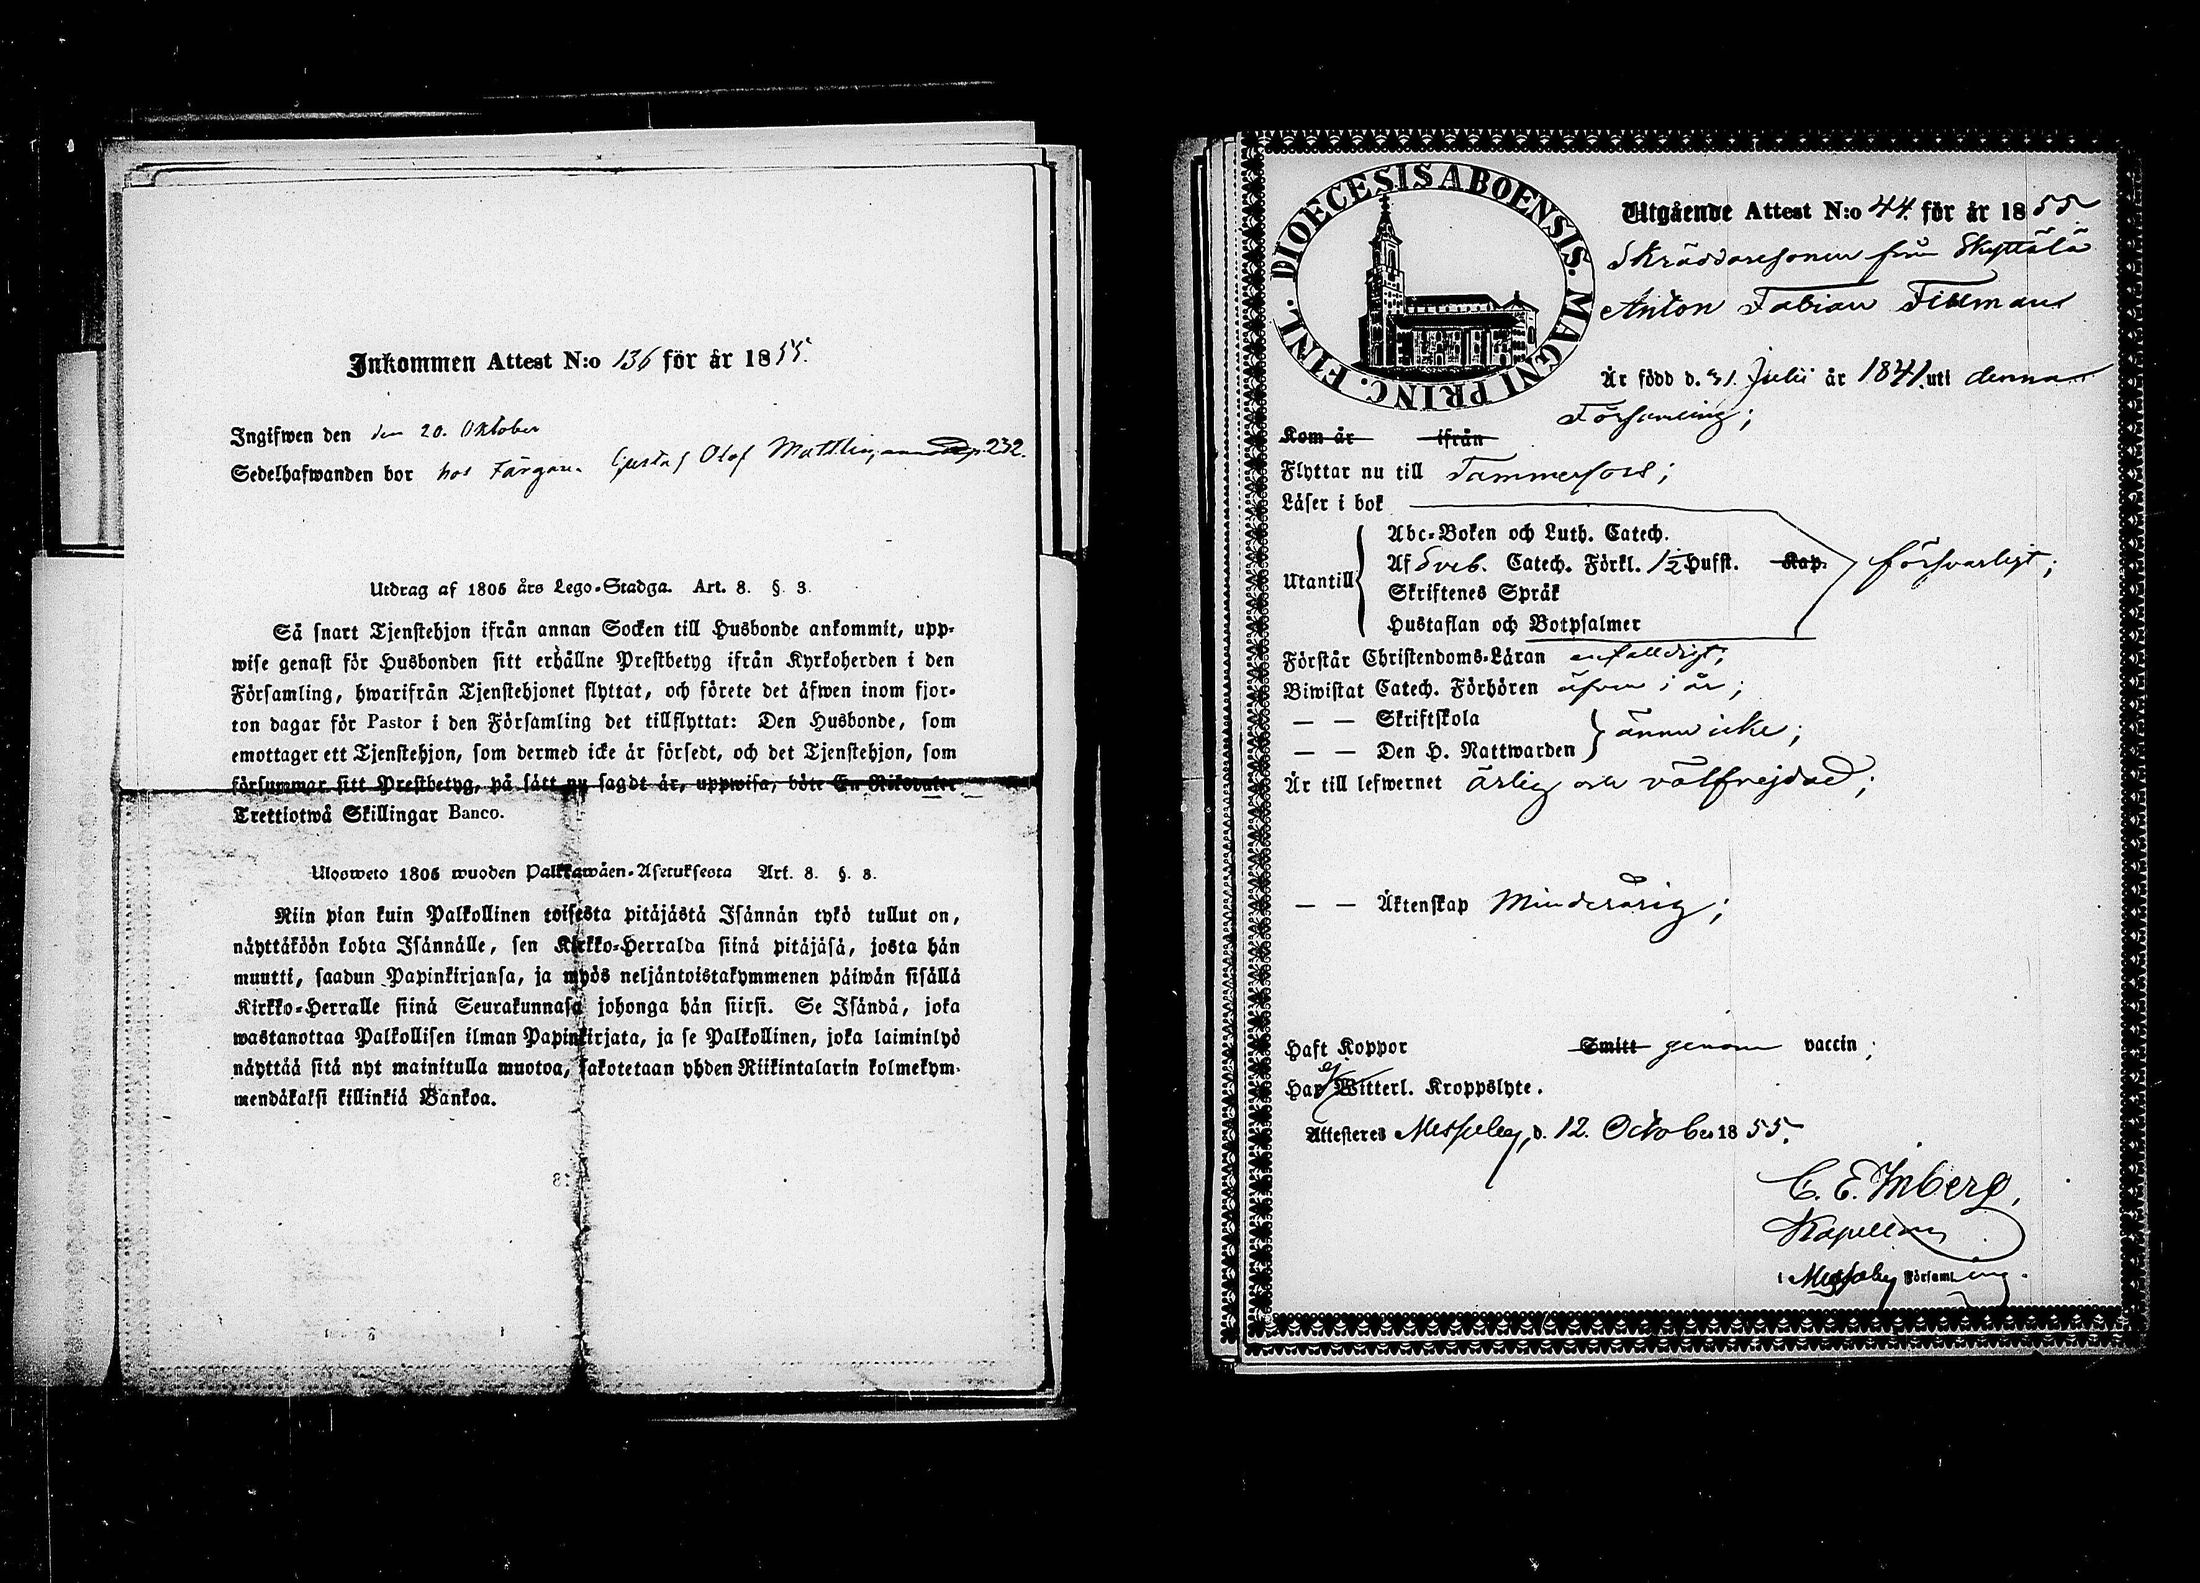 Inkommen Attest N:o 136 för år 1855.
Ingifwen den den 20. Oktober
Sedelhafwanden bor hos Färgare Gustaf Olof Mattlin, p. 232.
Utdrag af 1805 års Lego-Stadga. Art. 8. §. 3.
Så snart Tjenstehjon ifrån annan Socken till Husbonde ankommit, upp-
wise genast för Husbonden sitt erhållne Prestbetyg ifrån Kyrkoherden i den
Församling, hwarifrån Tjenstehjonet flyttat, och förete det äfwen inom fjor-
ton dagar för Pastor i den Församling det tillflyttat: Den Husbonde, som
emottager ett Tjenstehjon, som dermed icke är försedt, och det Tjenstehjon, som
försummar sitt Prestbetyg, på sätt nu sagdt är, uppwisa, böte En Riksdaler
Trettiotwå Skillingar Banco.
Ulosweto 1805 wuoden Palkkawäen-Asetuksesta Art. 8. §. 3.
Niin pian kuin Palkollinen toisesta pitäjästä Isännän tykö tullut on,
näyttäköön kohta Isännälle, sen Kirkko-Herralda siinä pitäjäsä, josta hän
muutti, saadun Papinkirjansa, ja myös neljäntoistakymmenen päiwän sisällä
Kirkko-Herralle siinä Seurakunnasa johonga hän siirsi. Se Isändä, joka
wastanottaa Palkollisen ilman Papinkirjata, ja se Palkollinen, joka laiminlyö
näyttää sitä nyt mainitulla muotoa, sakotetaan yhden Riikintalarin kolmekym-
mendäkaksi killinkiä Bankoa.
FINL. DIOECESIS ABOENSIS. MAGNI PRINC.
Utgående Attest N:o 44. för år 1855
Skräddaresonen från Skyttälä
Anton Fabian Tillman
Är född d. 31. Julii år 1841. uti denna
Församling;
Kom år ifrån
Flyttar nu till Tammerfors;
Läser i bok
Utantill
Abc-Boken och Luth. Catech.
Af Sveb. Catech. Förkl. 1½ Hufst. Kap.
Skriftenes Språk
Hustaflan och Botpsalmer
försvarligt;
Förstår Christendoms-Läran enfalldigt;
Biwistat Catech. Förhören äfven i år;
— — Skriftskola
— — Den H. Nattwarden
ännu icke;
Är till lefwernet ärlig och välfrejdad;
— — Äktenskap Minderårig;
Haft Koppor Smitt genom vaccin;
Har ej Witterl. Kroppslyte.
Attesteres Messuby, d. 12. October 1855.
C. E. Inberg,
Kapellan
i Messuby Församling.